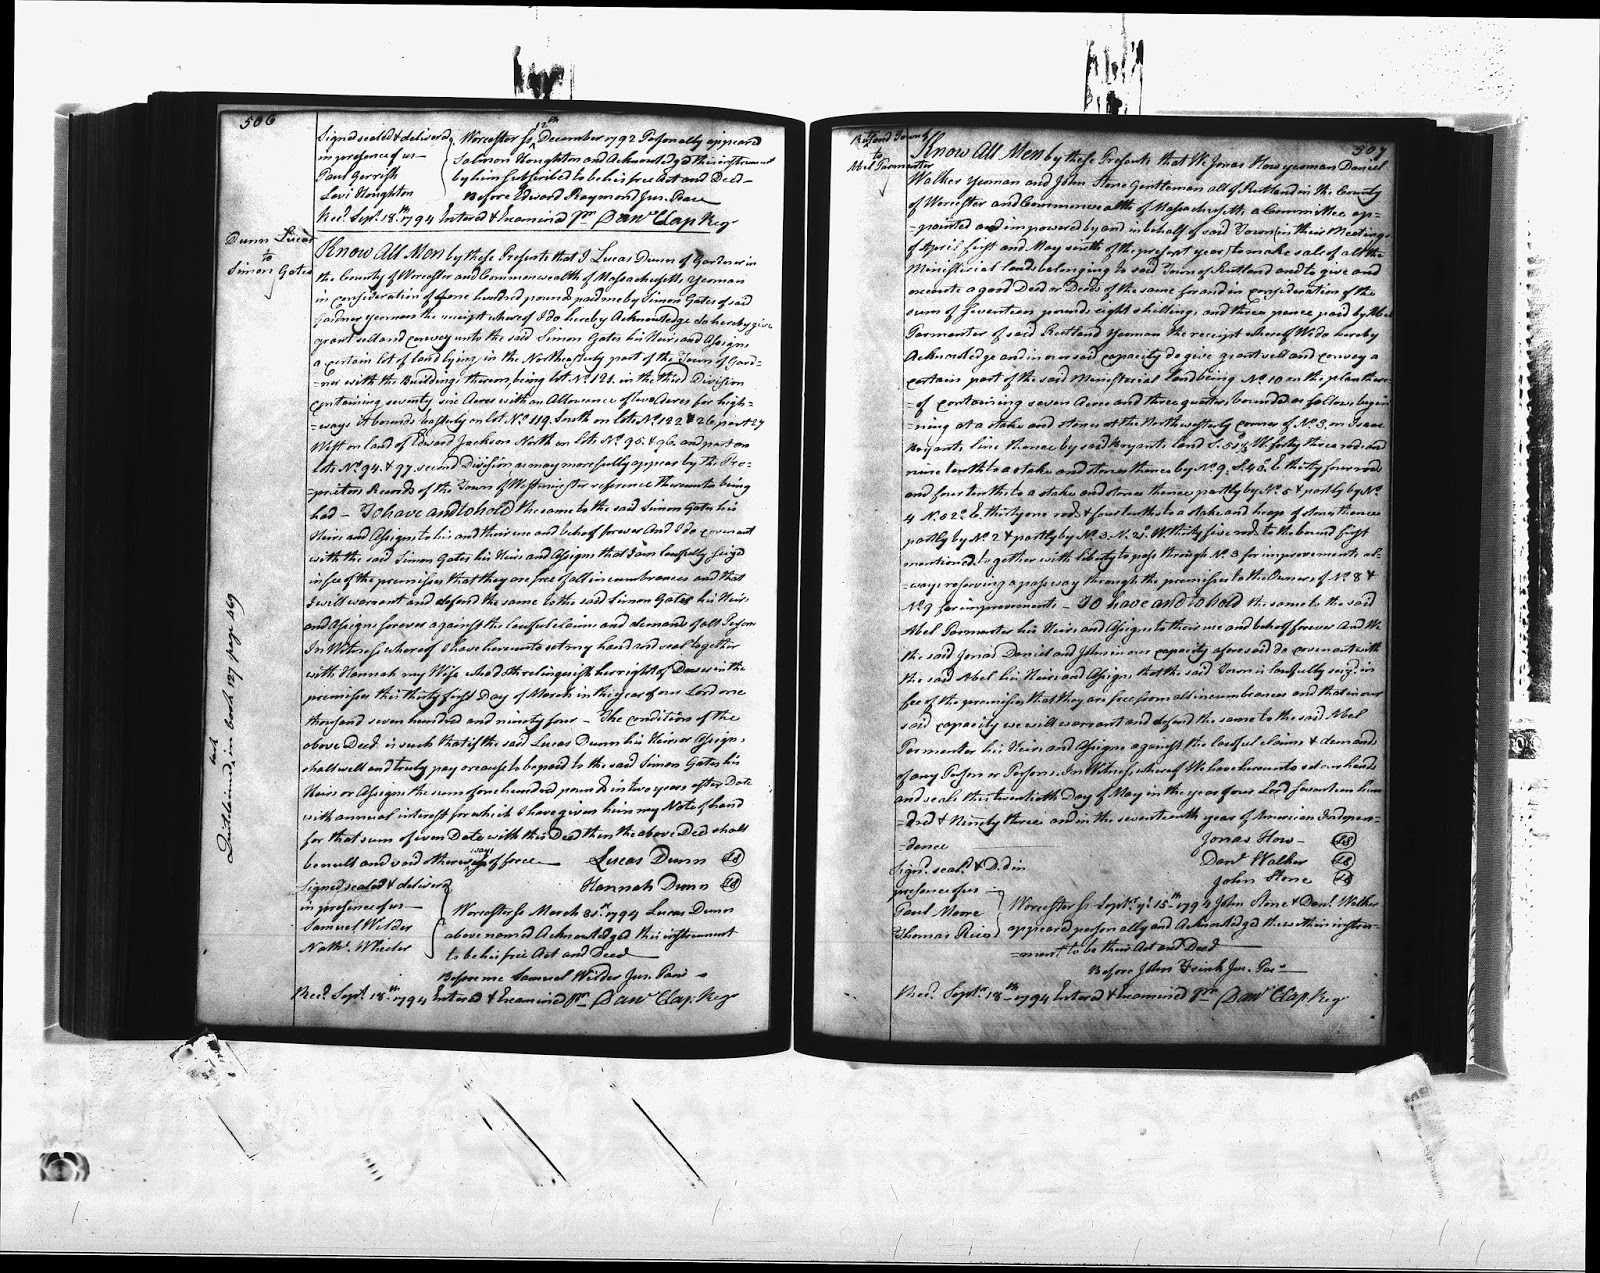 506
Signed sealed & deliverd
in presence of us —
Paul Gerrish
Levi Houghton
Worcester ss 12th December 1792 Personally appeared
Salmon Houghton and Acknowledged this instrument
by him subscribed to be his free Act and Deed —
Before Edward Raymond Jus. Peace
Recd. Sept. 18th 1794 Entered & Examined Pr Danl Clap Regr
Dunn Lucas
to
Simon Gates
Know All Men by these Presents that I Lucas Dunn of Gardner in
the County of Worcester and Commonwealth of Massachusetts Yeoman
in consideration of one hundred pounds paid me by Simon Gates of said
Gardner yeoman the receipt whereof I do hereby Acknowledge do hereby give
grant sell and convey unto the said Simon Gates his Heirs and Assigns
a certain lot of land lying in the Northeasterly part of the Town of Gard=
=ner with the Buildings thereon being lot No. 121. in the third Division
containing seventy six Acres with an Allowance of two Acres for high=
=ways it bounds easterly on lot No. 119 South on lots No. 122 & 26, part 27
West on land of Edward Jackson North on lots No. 95. & 96. and part on
lots No. 94. & 97. second Division as may more fully appear by the Pro=
=prietors Records of the Town of Westminster reference thereunto being
had — To have and to hold the same to the said Simon Gates his
Heirs and Assigns to his and their use and behoof forever And I do covenant
with the said Simon Gates his Heirs and Assigns that I am lawfully seizd
in fee of the premises that they are free of all incumbrances and that
I will warrant and defend the same to the said Simon Gates his Heirs
and Assigns forever against the lawful claims and demands of all Persons
In Witness whereof I have hereunto set my hand and seal together
with Hannah my Wife who doth relinquish her right of Dower in the
premises this thirty first Day of March in the year of our Lord one
thousand seven hundred and ninety four — The condition of the
above Deed is such that if the said Lucas Dunn his Heirs or Assigns
shall well and truly pay or cause to be paid to the said Simon Gates his
Heirs or Assigns the sum of one hundred pounds in two years after Date
with annual interest for which I have given him my Note of hand
for that sum of even Date with this Deed then the above Deed shall
be null and void otherways of force —
Lucas Dunn LS
Hannah Dunn LS
Signed sealed & deliverd
in presence of us —
Samuel Wilder
Nathl. Wheeler
Worcester ss March 31st 1794 Lucas Dunn
above named Acknowledged this instrument
to be his free Act and Deed
Before me Samuel Wilder Jus. Pace
Recd. Sept. 18th 1794 Entered & Examined Pr Danl Clap Regr
in book 127 page 469
507
to
Abel Parmenter
Know All Men by these Presents that We Jonas How yeoman Daniel
Walker Yeoman and John Stone Gentleman all of Rutland in the County
of Worcester and Commonwealth of Massachusetts a Committee ap=
=pointed and impowered by and in behalf of said Town (in their Meetings
of April first and May sixth of the present year) to make sale of all the
Ministerial lands belonging to said Town of Rutland and to give and
execute a good Deed or Deeds of the same for and in consideration of the
sum of seventeen pounds eight shillings and three pence paid by Abel
Parmenter of said Rutland Yeoman the receipt whereof We do hereby
Acknowledge and in our said capacity do give grant sell and convey a
certain part of the said Ministerial land being No. 10 on the plan there=
=of containing seven Acres and three quarters bounded as follows begin
ning at a stake and stones at the Northwesterly corner of No. 3. on Isaac
Bryants line thence by said Bryants land S. W. forty three rods and
nine tenths to a stake and stones thence by No. 9. S. 40. E thirty four rods
and four tenths to a stake and stones thence partly by No. 5 & partly by No.
4 N. 62° E. thirty one rods & four tenths to a stake and heap of stones thence
partly by No. 2 & partly by No. 3. N. W. thirty five rods to the bound first
mentioned, together with liberty to pass through No. 3 for improvements al=
=ways reserving a pass way through the premises to the Owners of No. 8 &
No. 9 for improvements — To have and to hold the same to the said
Abel Parmenter his Heirs and Assigns to their use and behoof forever And We
the said Jonas Daniel and John in our capacity aforesaid do covenant with
the said Abel his Heirs and Assigns that the said Town is lawfully seizd in
fee of the premises that they are free from all incumbrances and that in our
said capacity we will warrant and defend the same to the said Abel
Parmenter his Heirs and Assigns against the lawful claims & demands
of any Person or Persons. In Witness whereof We have hereunto set our hands
and seals this twentieth Day of May in the year of our Lord seventeen hun
=dred & Ninety three and in the seventeenth year of American Indepen=
=dence
Jonas How — LS
Danl. Walker LS
John Stone LS
Sign. seal. & Dd. in
presence of us —
Paul Moore
Thomas Rice
Worcester ss Septr. ye. 15th 1794 John Stone & Danl. Walker
appeared personally and Acknowledged the within instru=
=ment to be their Act and Deed
Before John Frink Jus. Pace
Recd. Septr. 18th 1794 Entered & Examined Pr Danl Clap Regr